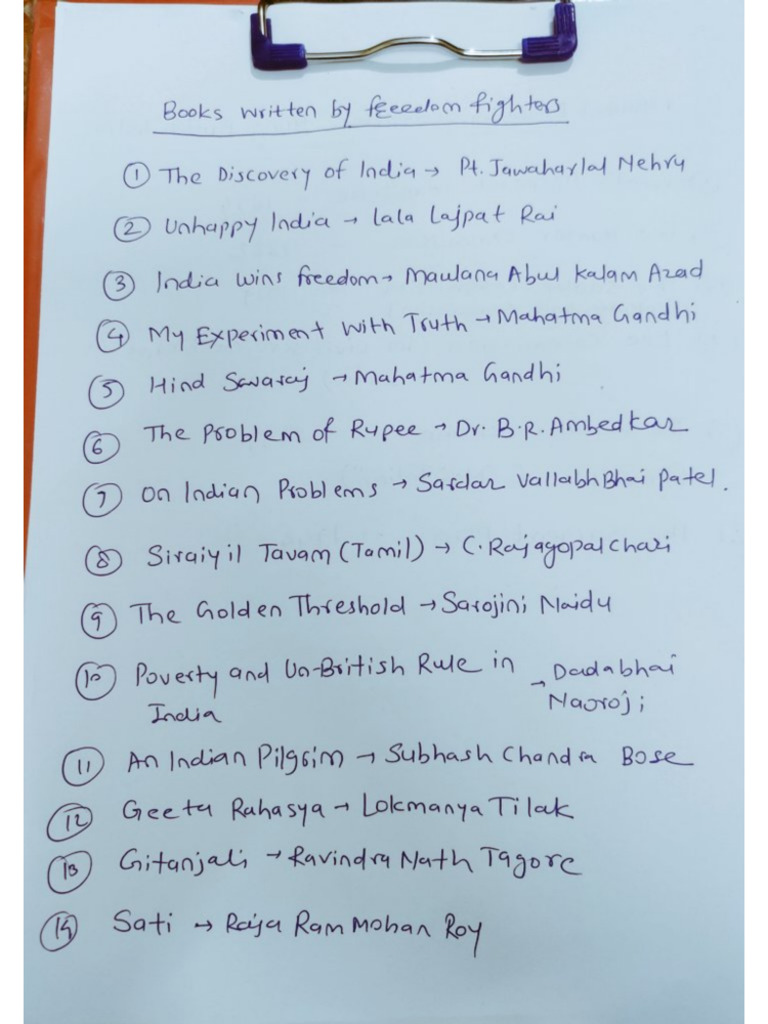 Books written by freedom fighters
① The Discovery of India → Pt. Jawaharlal Nehru
② Unhappy India → Lala Lajpat Rai
③ India wins freedom → Maulana Abul Kalam Azad
④ My Experiment with Truth → Mahatma Gandhi
⑤ Hind Swaraj → Mahatma Gandhi
⑥ The Problem of Rupee → Dr. B.R. Ambedkar
⑦ On Indian Problems → Sardar Vallabh Bhai Patel.
⑧ Siraiyil Tavam (Tamil) → C. Rajagopalchari
⑨ The Golden Threshold → Sarojini Naidu
⑩ Poverty and Un-British Rule in India → Dadabhai Naoroji
⑪ An Indian Pilgrim → Subhash Chandra Bose
⑫ Geeta Rahasya → Lokmanya Tilak
⑬ Gitanjali → Ravindra Nath Tagore
⑭ Sati → Raja Ram Mohan Roy